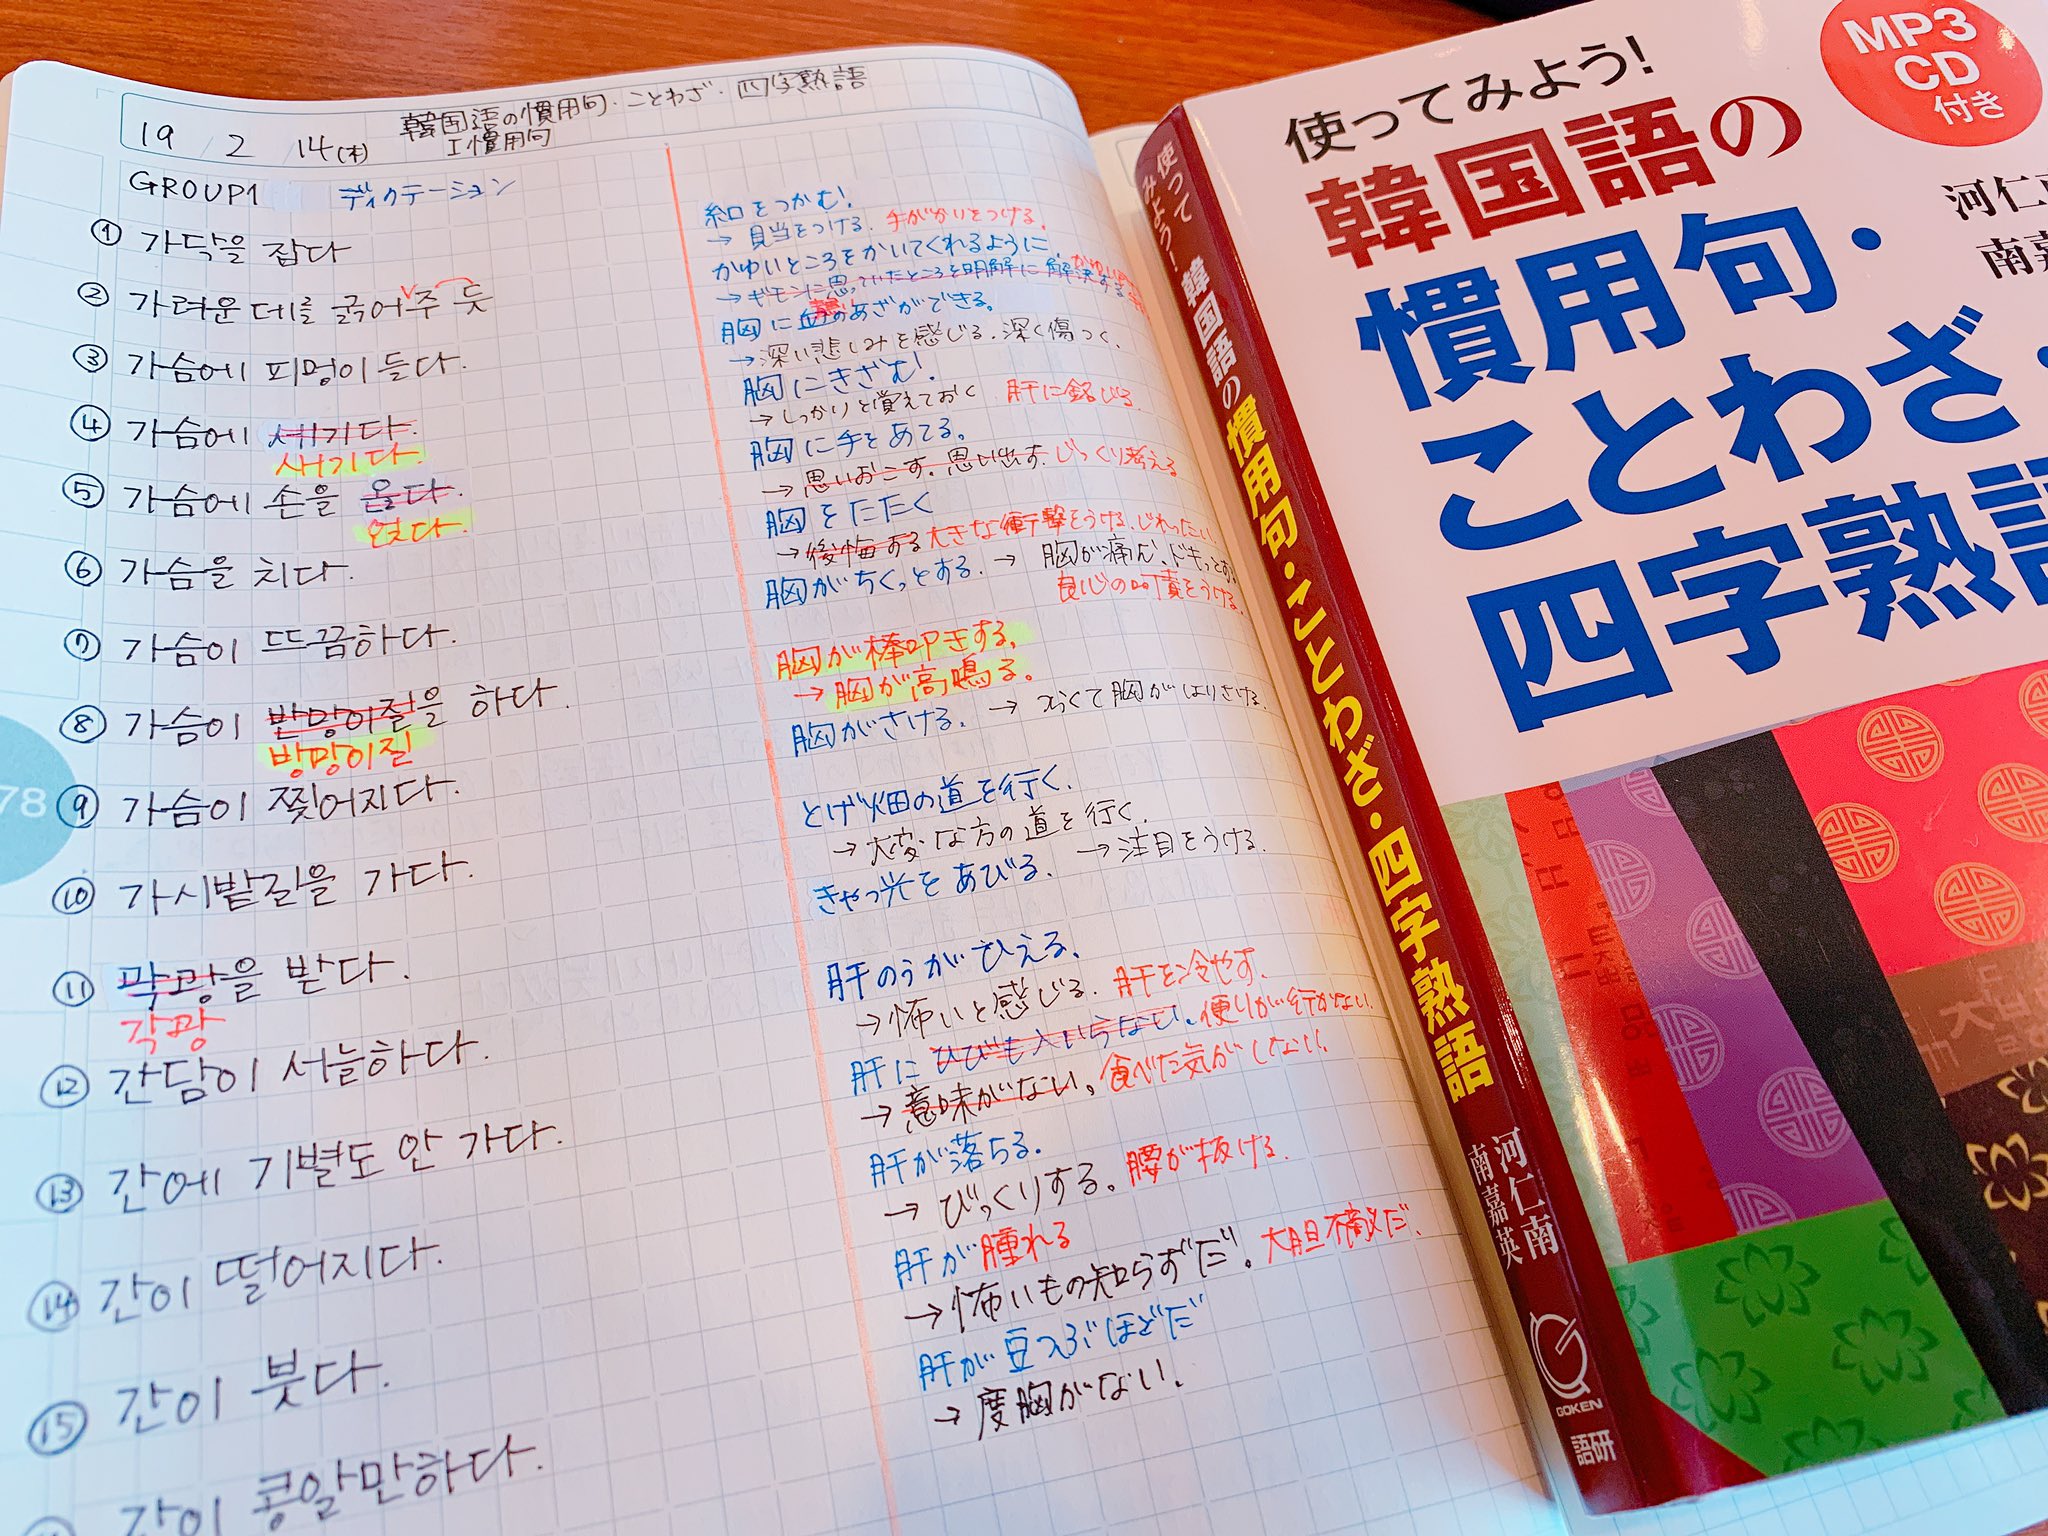 19 / 2 / 14(木)
韓国語の慣用句・ことわざ・四字熟語
I 慣用句
GROUP1 ディクテーション
① 가닥을 잡다
② 가려운 데를 긁어주 듯
③ 가슴에 피멍이 들다.
④ 가슴에 세기다.
새기다.
⑤ 가슴에 손을 올다.
얹다.
⑥ 가슴을 치다.
⑦ 가슴이 뜨끔하다.
⑧ 가슴이 반망이질을 하다.
방망이질
⑨ 가슴이 찢어지다.
⑩ 가시밭길을 가다.
⑪ 막광을 받다.
각광
⑫ 간담이 서늘하다.
⑬ 간에 기별도 안 가다.
⑭ 간이 떨어지다.
⑮ 간이 붓다.
간이 콩알만하다.
78
糸口をつかむ!
→ 見当をつける. 手がかりをつける.
かゆいところをかいてくれるように
→ ギモンに思っていたところを明解に解決する
胸に血のあざができる。
→ 深い悲しみを感じる. 深く傷つく.
胸にきざむ!
→ しっかりと覚えておく 肝に銘じる.
胸に手をあてる。
→ 思いおこす. 思い出す. じっくり考える
胸をたたく
→ 後悔する 大きな衝撃をうける. じれったい
胸がちくっとする. → 胸が痛む、ドキっとする
良心の呵責をうける.
胸が棒叩きする.
→ 胸が高鳴る。
胸がさける. → つらくて胸がはりさける.
とげ畑の道を行く.
→ 大変な方の道を行く.
きゃっ光をあびる. → 注目をうける.
肝のうがひえる.
→ 怖いと感じる. 肝を冷やす.
肝にひびも入いらない. 便りが行かない.
→ 意味がない。食べた気がしない.
肝が落ちる.
→ びっくりする。腰が抜ける.
肝が腫れる
→ 怖いもの知らずだ。大胆不敵だ.
肝が豆つぶほどだ
→ 度胸がない.
使ってみよう!
韓国語の
慣用句・
ことわざ・
四字熟語
MP3
CD
付き
河仁南
南嘉英
使ってみよう! 韓国語の慣用句・ことわざ・四字熟語
河仁南
南嘉英
GOKEN
語研